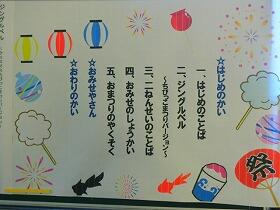 ☆はじめのかい
一、はじめのことば
二、ジングルベル
～ちびっこまつりバージョン～
三、二ねんせいのことば
四、おみせのしょうかい
五、おまつりのやくそく
☆おみせやさん
☆おわりのかい
祭
ジングルベル